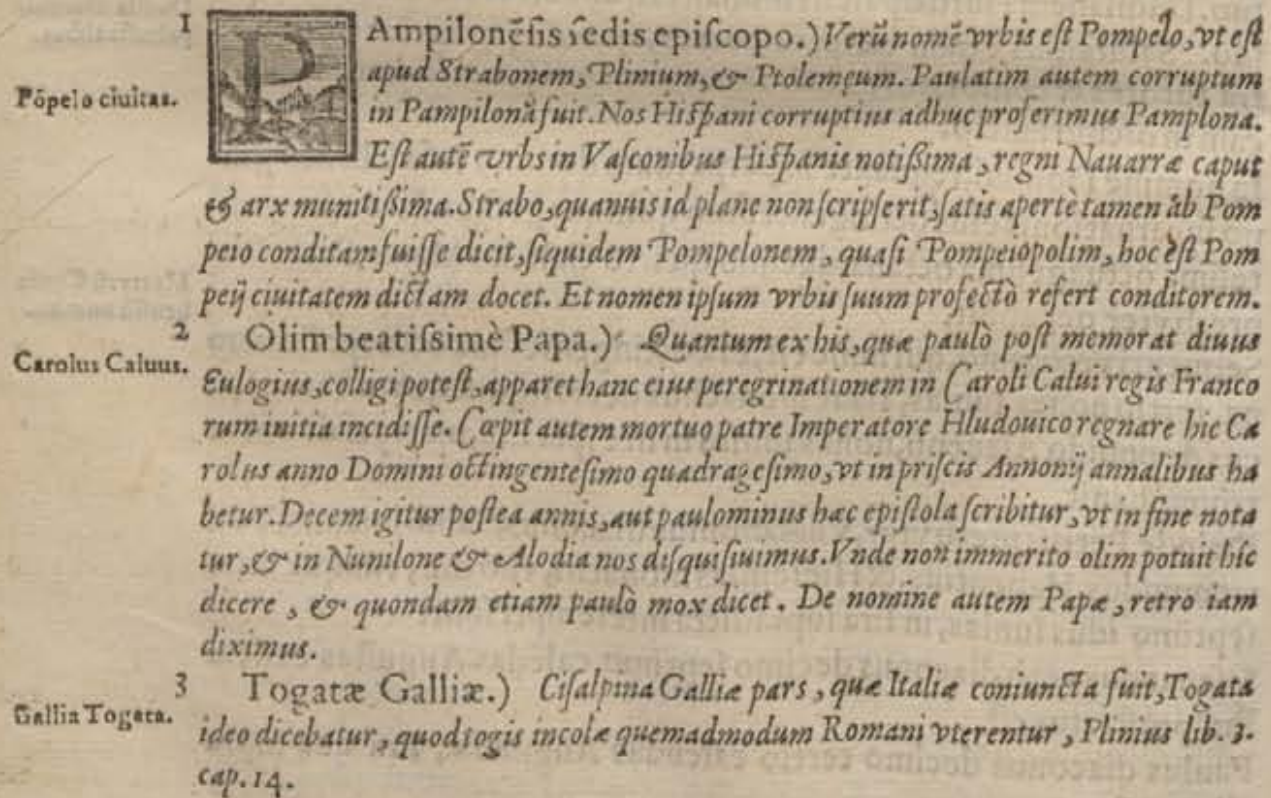 1
PAmpilonẽſis ſedis epiſcopo.) Verũ nomẽ vrbis eſt Pompelo, vt eſt
apud Strabonem, Plinium, & Ptolemęum. Paulatim autem corruptum
Põpelo ciuitas.
in Pampilonã fuit. Nos Hiſpani corruptius adhuc proferimus Pamplona.
Eſt autẽ vrbs in Vaſconibus Hiſpanis notißima, regni Nauarræ caput
& arx munitißima. Strabo, quanuis id plane non ſcripſerit, ſatis apertè tamen àb Pom
peio conditam fuiſſe dicit, ſiquidem Pompelonem, quaſi Pompeiopolim, hoc eſt Pom
peij ciuitatem dictam docet. Et nomen ipſum vrbis ſuum profectò refert conditorem.
2
Olim beatiſsimè Papa.) Quantum ex his, quæ paulò poſt memorat diuus
Carolus Caluus.
Eulogius, colligi poteſt, apparet hanc eius peregrinationem in Caroli Calui regis Franco
rum initia incidiſſe. Cœpit autem mortuo patre Imperatore Hludouico regnare hic Ca
rolus anno Domini octingenteſimo quadrageſimo, vt in priſcis Annonij annalibus ha
betur. Decem igitur poſtea annis, aut paulominus hæc epiſtola ſcribitur, vt in fine nota
tur, & in Nunilone & Alodia nos diſquiſiuimus. Vnde non immerito olim potuit hîc
dicere, & quondam etiam paulò mox dicet. De nomine autem Papæ, retro iam
diximus.
3
Togatæ Galliæ.) Ciſalpina Galliæ pars, quæ Italiæ coniuncta fuit, Togata
Gallia Togata.
ideo dicebatur, quod togis incolæ quemadmodum Romani vterentur, Plinius lib. 3.
cap. 14.